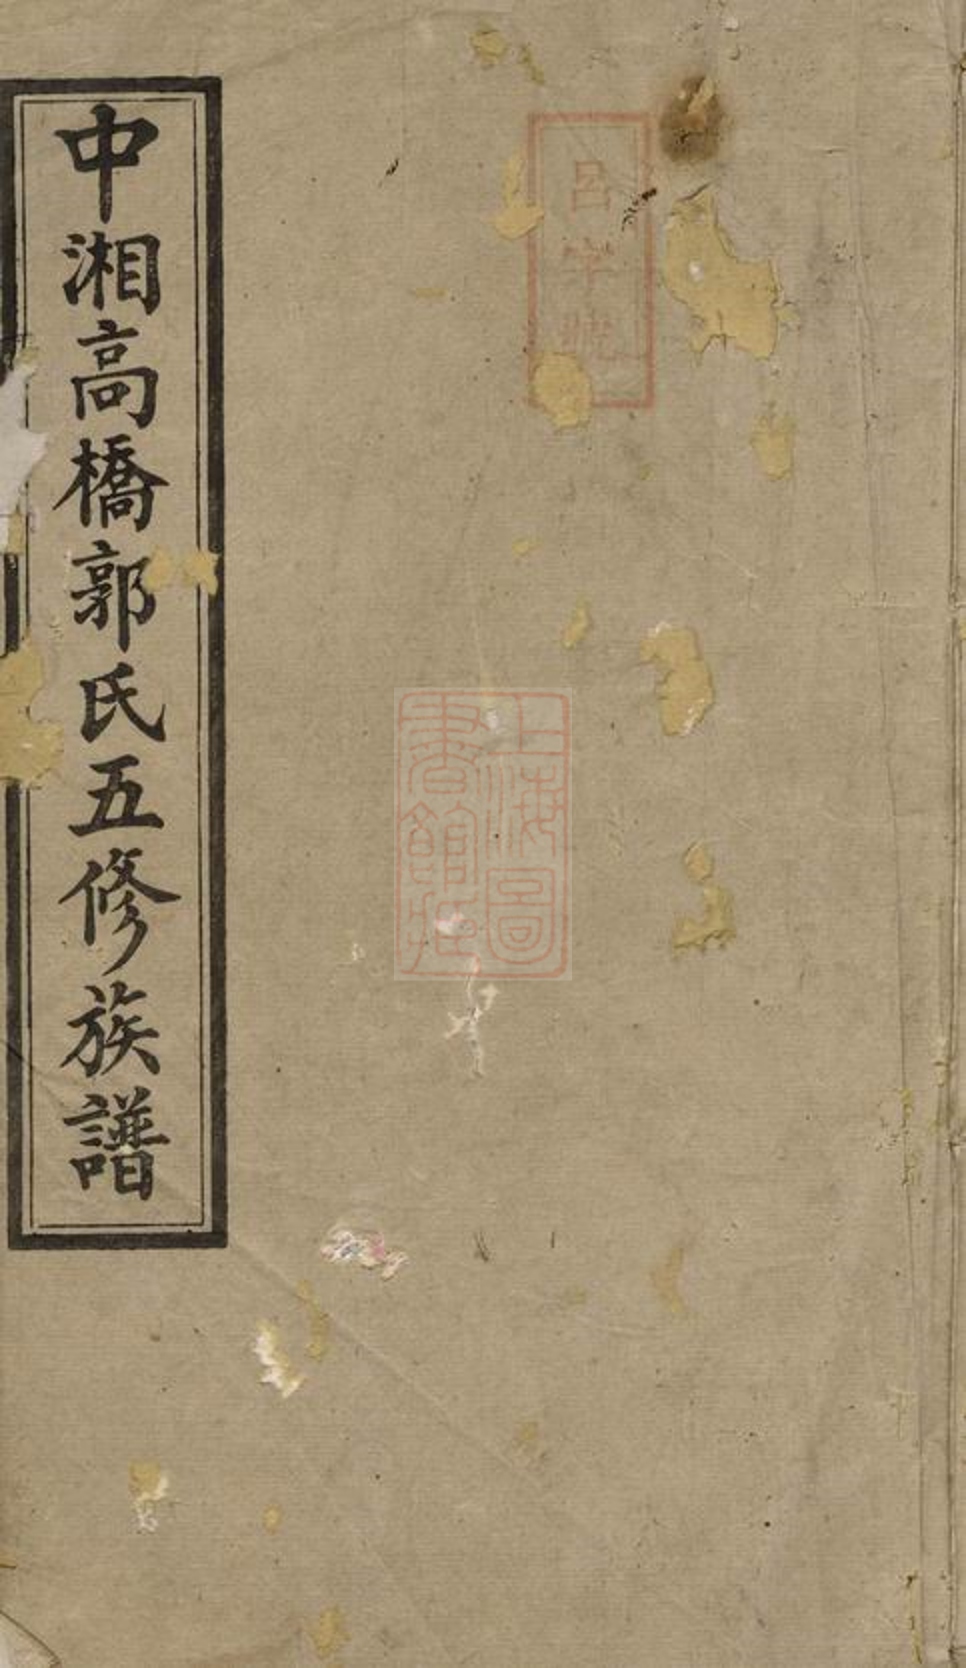 呂字號
上海圖
書館藏
中湘高橋郭氏五修族譜